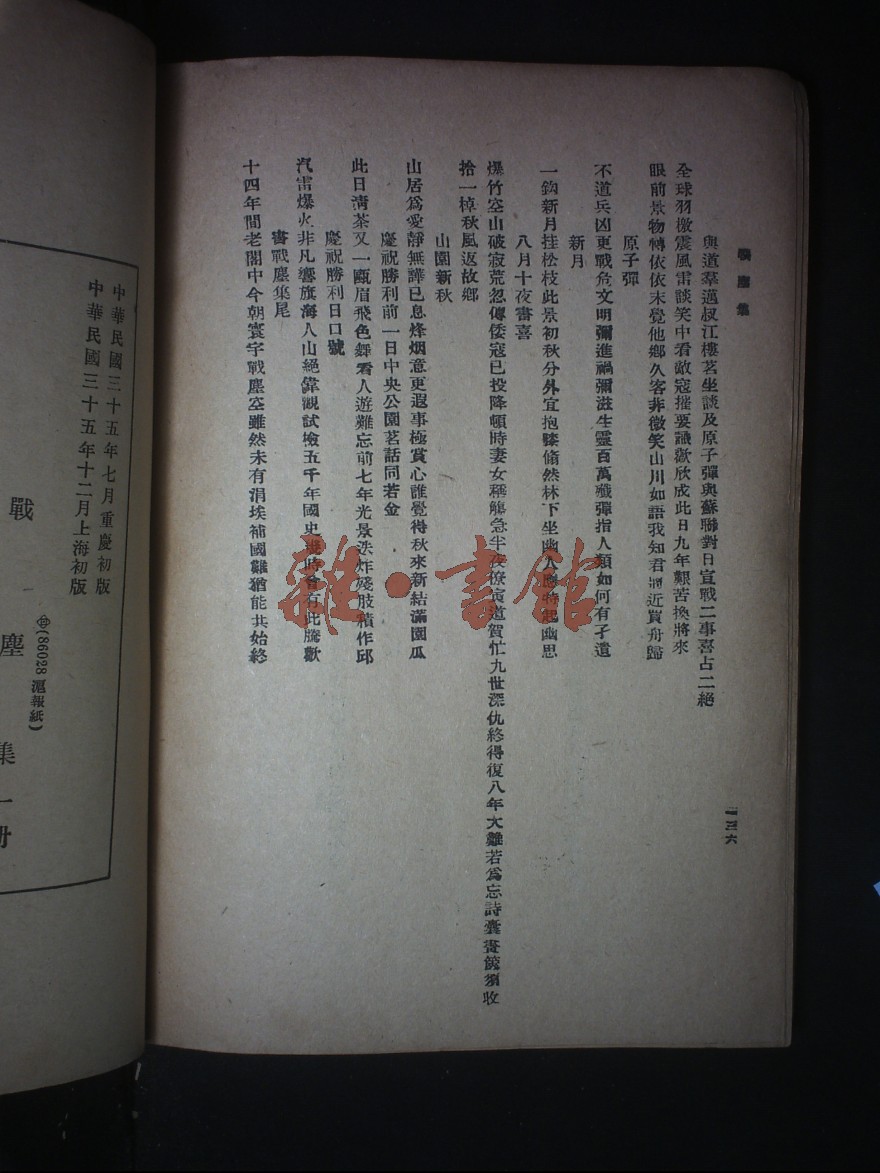 戰塵集
二三六
與道羣邁叔江樓茗坐談及原子彈與蘇聯對日宣戰二事喜占二絕
全球羽檄震風雷談笑中看敵寇摧要識歡欣成此日九年艱苦換將來
眼前景物轉依依未覺他鄉久客非微笑山川如語我知君將近買舟歸
原子彈
不道兵凶更戰危文明彌進禍彌滋生靈百萬殲彈指人類如何有孑遺
新月
一鈎新月挂松枝此景初秋分外宜抱膝翛然林下坐幽人應特起幽思
八月十夜書喜
爆竹空山破寂荒忽傳倭寇已投降頓時妻女稱觴急半夜僚寅道賀忙九世深仇終得復八年大難若爲忘詩囊書篋須收
拾一棹秋風返故鄉
山園新秋
山居爲愛靜無譁已息烽烟意更遐事極賞心誰覺得秋來新結滿園瓜
慶祝勝利前一日中央公園茗話同若金
此日淸茶又一甌眉飛色舞看人遊難忘前七年光景迭炸殘肢積作邱
慶祝勝利日口號
汽雷爆火非凡響旗海人山絕偉觀試檢五千年國史幾時會有此騰歡
書戰塵集尾
十四年間老閣中今朝寰宇戰塵空雖然未有涓埃補國難猶能共始終
中華民國三十五年七月重慶初版
中華民國三十五年十二月上海初版
(86028滬報紙)
戰塵集一册
雜·書館